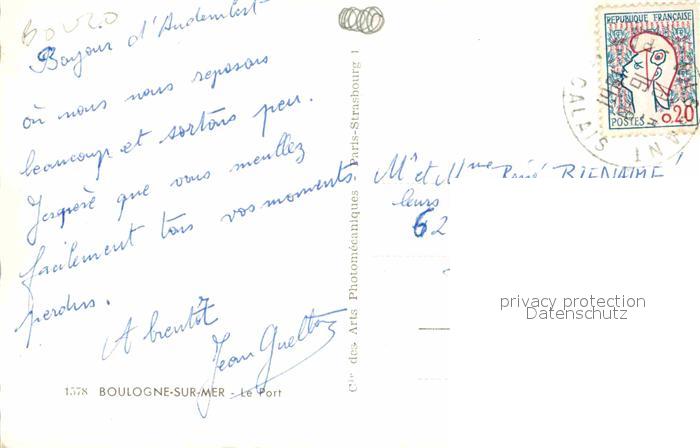 BOUZO
Bonjour d'Audembert
où nous nous reposons
beaucoup et sortons peu.
J'espère que vous meublez
facilement tous vos moments
perdus.
A bientôt
Jean
1578 BOULOGNE-SUR-MER - Le Port
Cie des Arts Photomécaniques Paris-Strasbourg 1
REPUBLIQUE FRANÇAISE
POSTES 0,20
CALAIS
Mr et Mme
leurs
62
privacy protection
Datenschutz